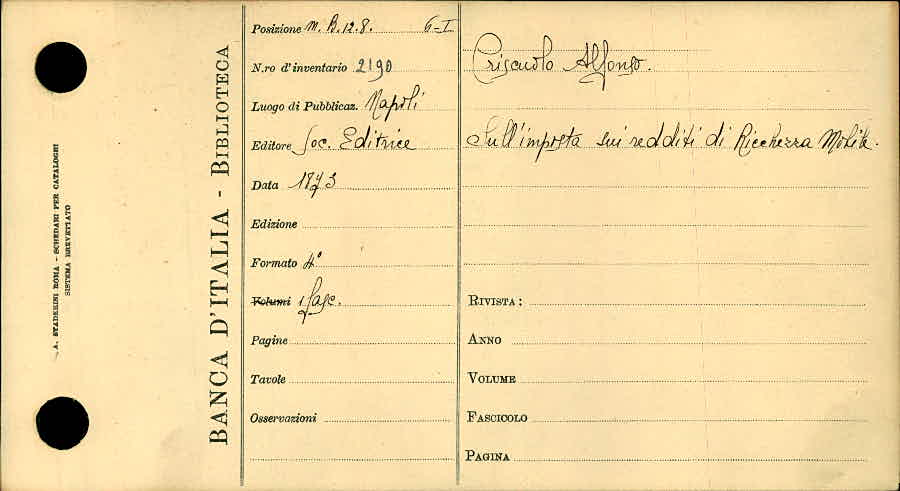 A. STADERINI ROMA - SCHEDARI PER CATALOGHI
SISTEMA BREVETTATO
BANCA D'ITALIA - BIBLIOTECA
Posizione M. B. 12. 8. 6-I
N.ro d'inventario 2190
Luogo di Pubblicaz. Napoli
Editore Soc. Editrice
Data 1873
Edizione
Formato 4°
Volumi 1 fasc.
Pagine
Tavole
Osservazioni
Criscuolo Alfonso.
Sull'imposta sui redditi di Ricchezza Mobile.
RIVISTA:
ANNO
VOLUME
FASCICOLO
PAGINA